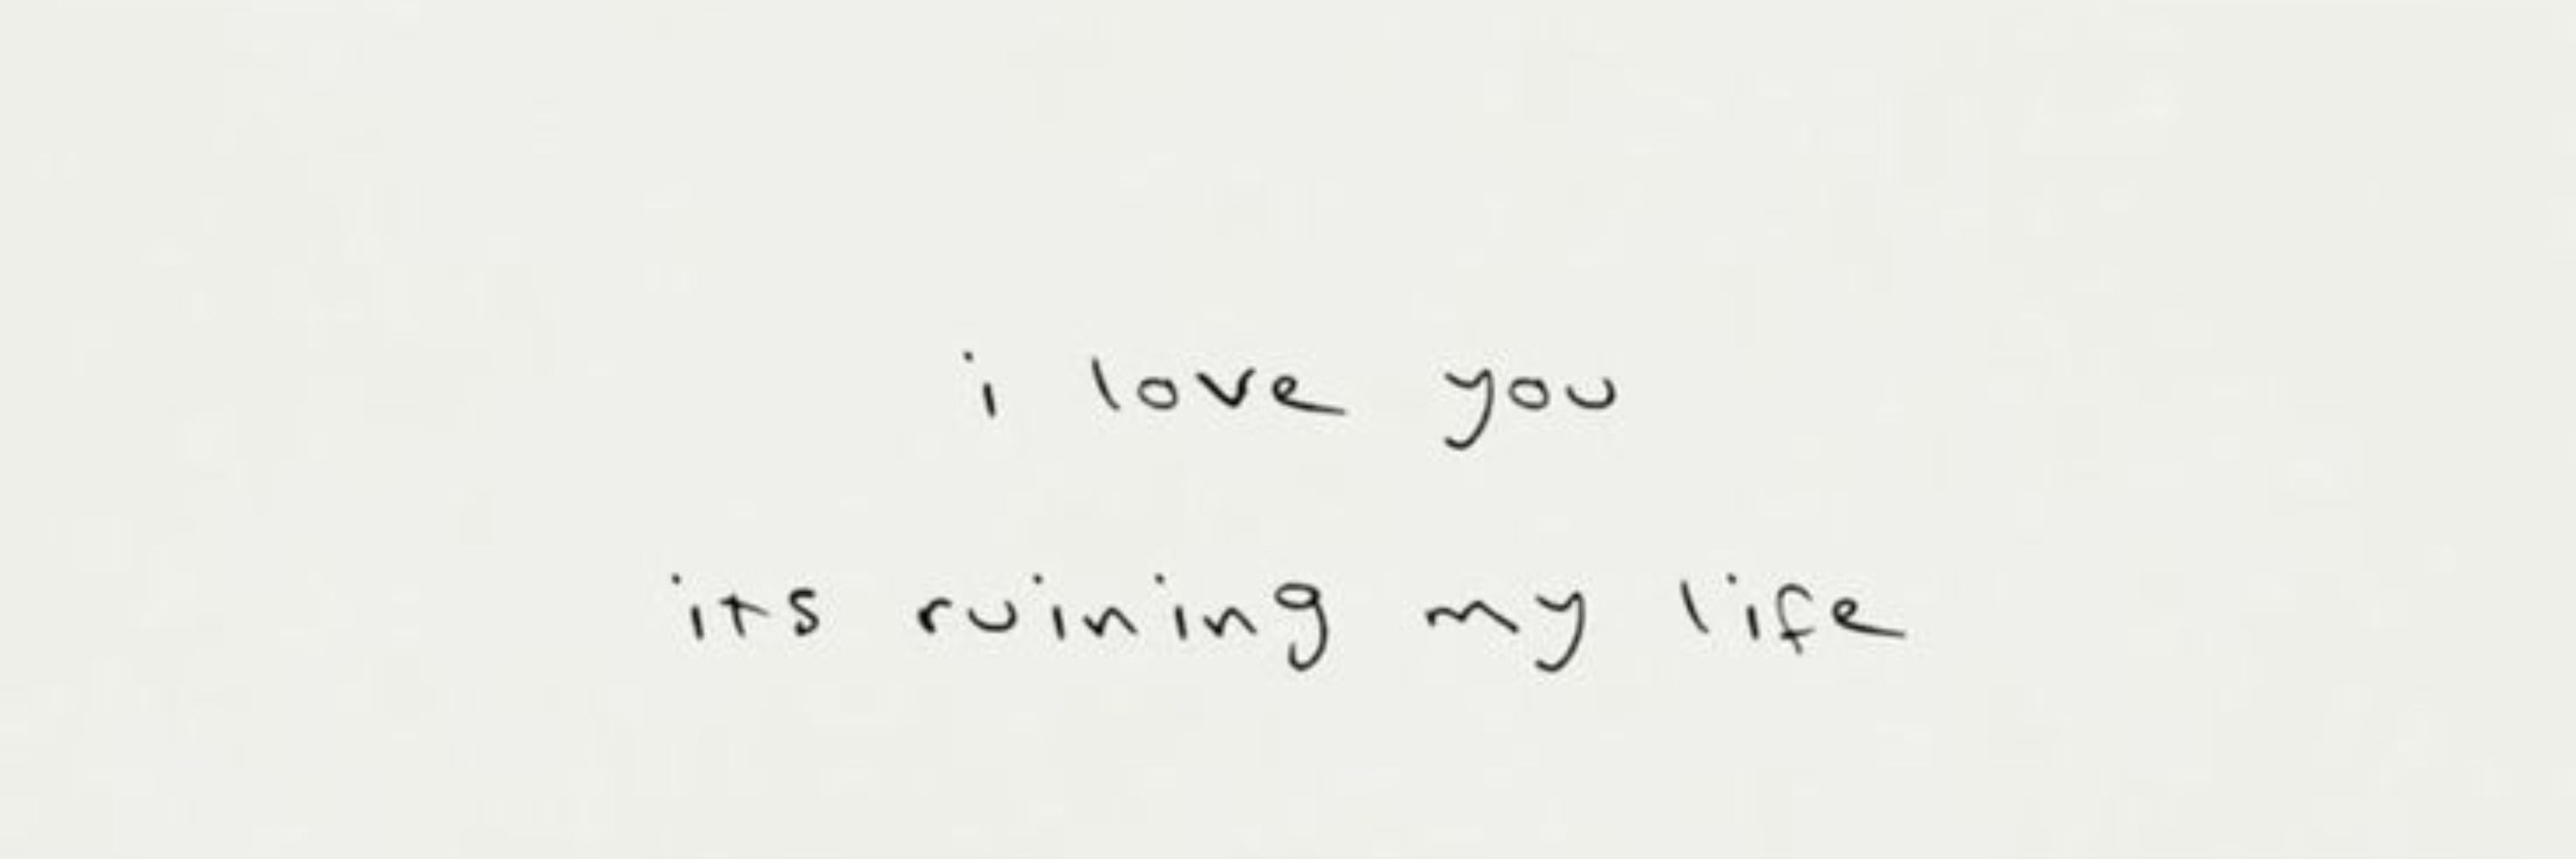 i love you
its ruining my life